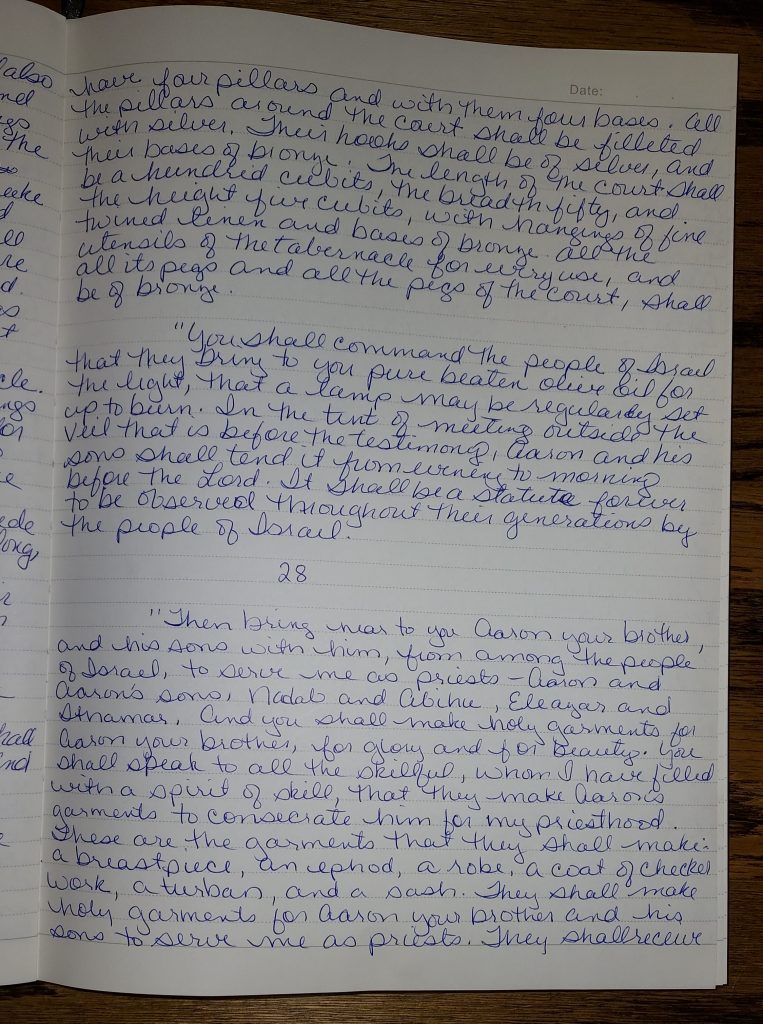 Date:
have four pillars and with them four bases. All
the pillars around the court shall be filleted
with silver. Their hooks shall be of silver, and
their bases of bronze. The length of the court shall
be a hundred cubits, the breadth fifty, and
the height five cubits, with hangings of fine
twined linen and bases of bronze. All the
utensils of the tabernacle for every use, and
all its pegs and all the pegs of the court, shall
be of bronze.
"You shall command the people of Israel
that they bring to you pure beaten olive oil for
the light, that a lamp may be regularly set
up to burn. In the tent of meeting outside the
veil that is before the testimony, Aaron and his
sons shall tend it from evening to morning
before the Lord. It shall be a statute forever
to be observed throughout their generations by
the people of Israel.
28
"Then bring near to you Aaron your brother,
and his sons with him, from among the people
of Israel, to serve me as priests - Aaron and
Aaron's sons, Nadab and Abihu, Eleazar and
Ithamar. And you shall make holy garments for
Aaron your brother, for glory and for beauty. You
shall speak to all the skillful, whom I have filled
with a spirit of skill, that they make Aaron's
garments to consecrate him for my priesthood.
These are the garments that they shall make:
a breastpiece, an ephod, a robe, a coat of checker
work, a turban, and a sash. They shall make
holy garments for Aaron your brother and his
sons to serve me as priests. They shall receive